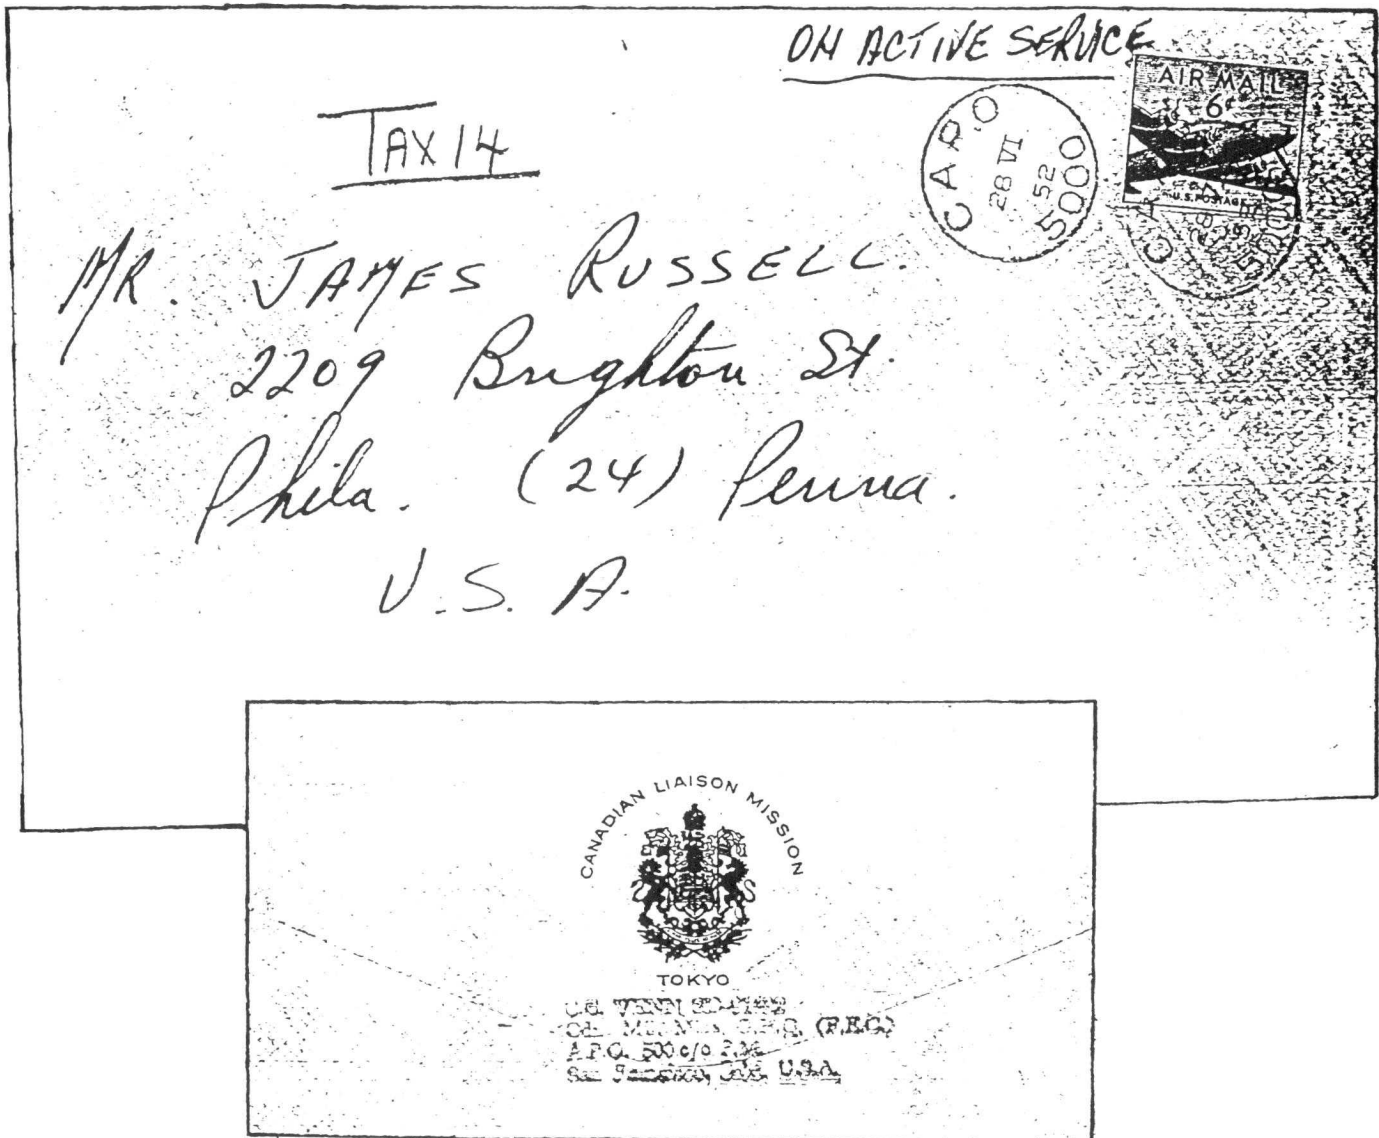 ON ACTIVE SERVICE
AIR MAIL
6¢
U.S. POSTAGE
TAX 14
C A P O
28 VI
52
5000
MR. JAMES RUSSELL.
2209 Brighton St.
Phila. (24) Penna.
U.S.A.
CANADIAN LIAISON MISSION
TOKYO
(F.E.C.)
A.P.O. 500 c/o P.M.
San Francisco, U.S.A.